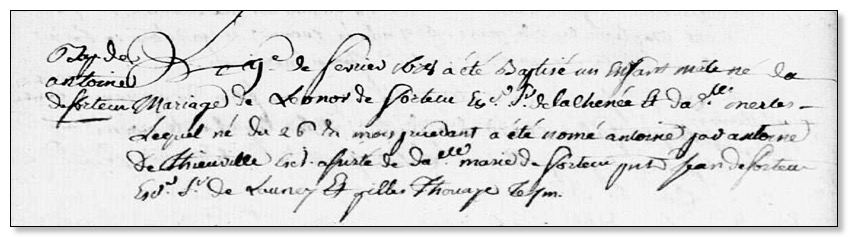 Bap. de
antoine
de forteu
Du 9e. de fevrier 1678 a été Baptisé un Enfant mâle né du
Mariage de Leonor de forteu Esc. Sr. de la chenée Et da.lle
Lequel né du 26 du mois precedant a été nomé antoine par antoine
de thieuville Esc. assisté de da.lle marie de forteu pnt. jean de forteu
Esc. Sr. de Launey Et gilles Thouage Tesm.